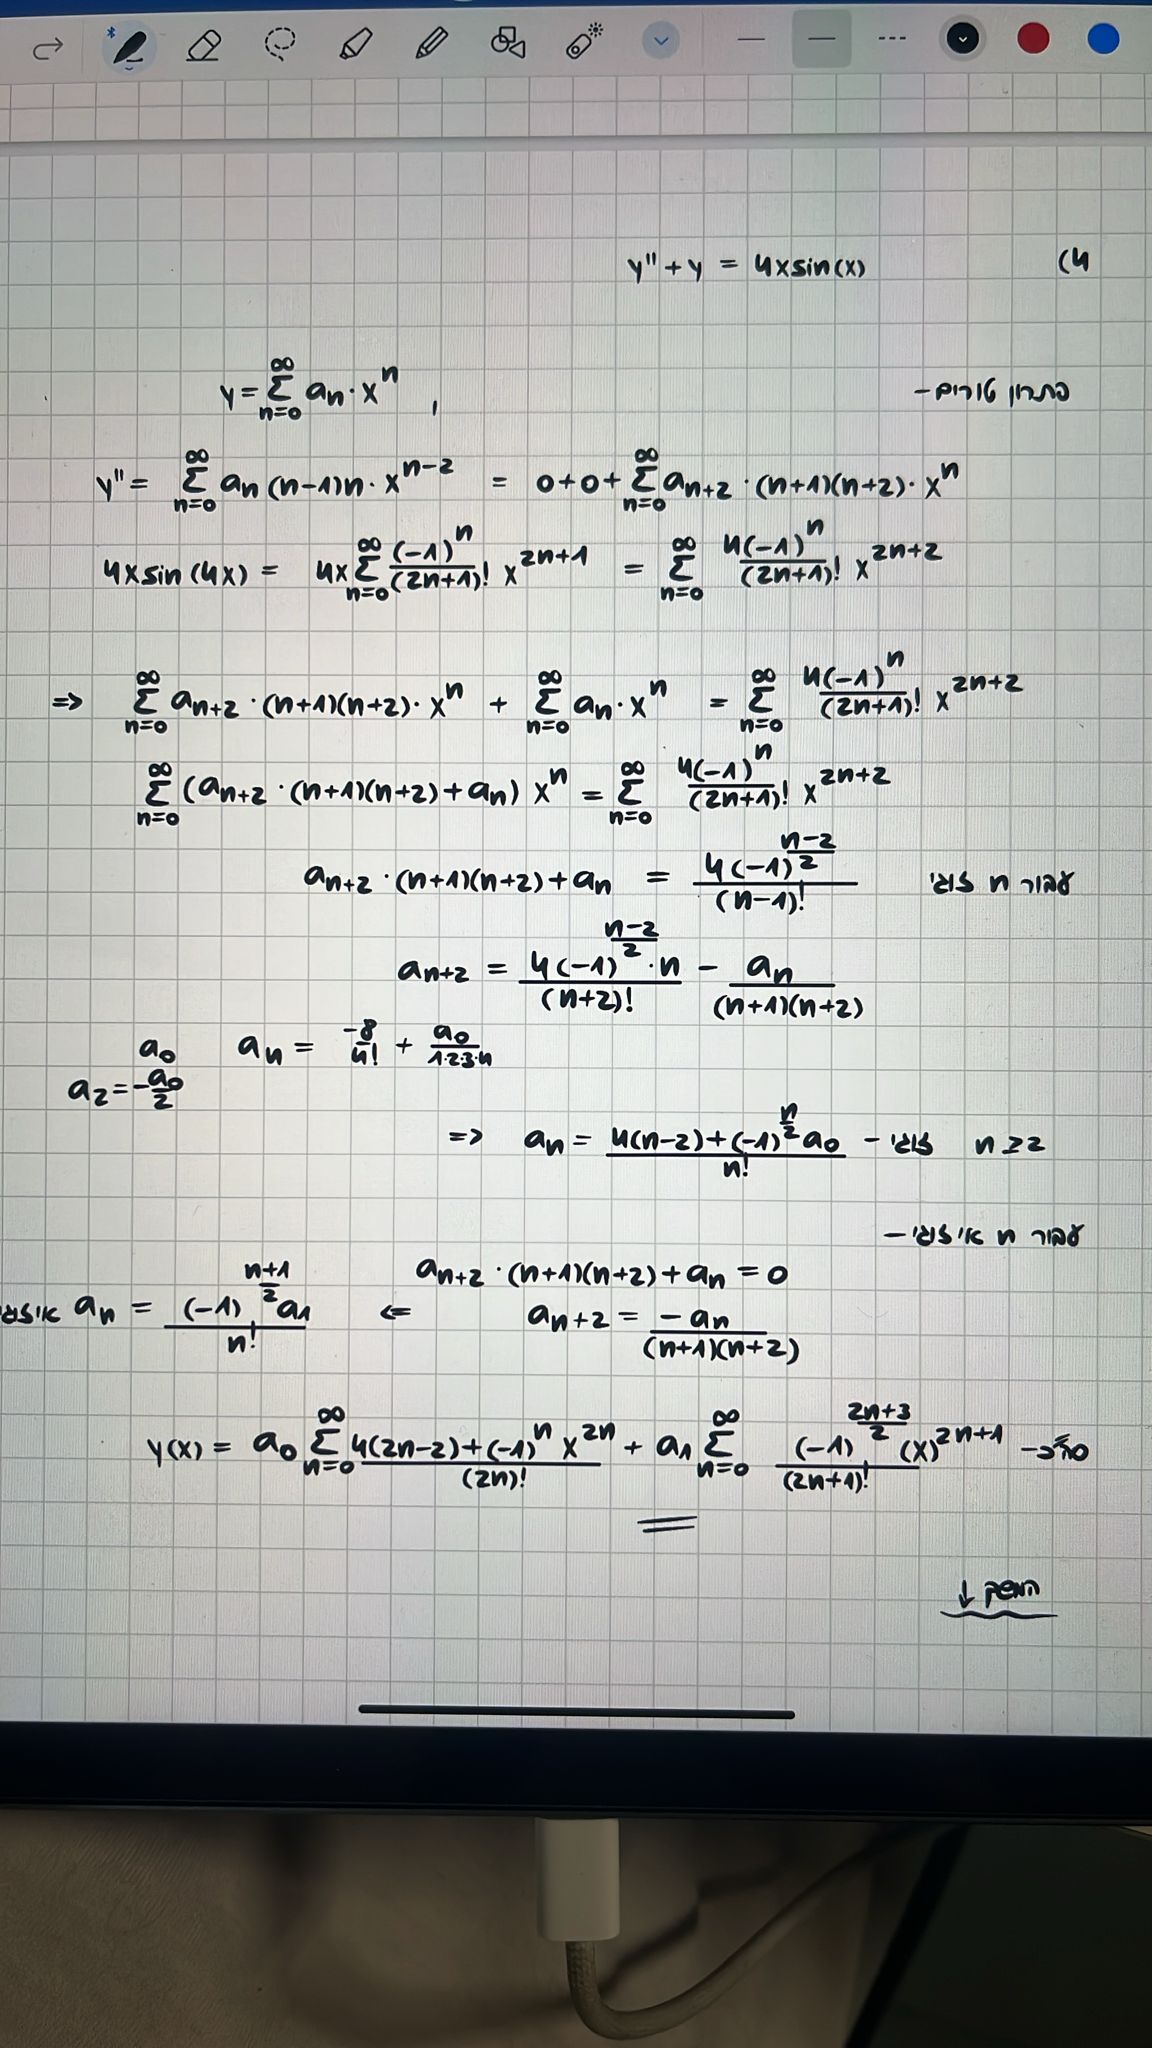 4) y'' + y = 4xsin(x)
פתרון טורים -
y = ∑_{n=0}^{∞} a_n · x^n ,
y'' = ∑_{n=0}^{∞} a_n (n-1)n · x^{n-2} = 0+0+ ∑_{n=0}^{∞} a_{n+2} · (n+1)(n+2) · x^n
4xsin(4x) = 4x ∑_{n=0}^{∞} \frac{(-1)^n}{(2n+1)!} x^{2n+1} = ∑_{n=0}^{∞} \frac{4(-1)^n}{(2n+1)!} x^{2n+2}
=> ∑_{n=0}^{∞} a_{n+2} · (n+1)(n+2) · x^n + ∑_{n=0}^{∞} a_n · x^n = ∑_{n=0}^{∞} \frac{4(-1)^n}{(2n+1)!} x^{2n+2}
∑_{n=0}^{∞} (a_{n+2} · (n+1)(n+2) + a_n) x^n = ∑_{n=0}^{∞} \frac{4(-1)^n}{(2n+1)!} x^{2n+2}
עבור n זוגי a_{n+2} · (n+1)(n+2) + a_n = \frac{4(-1)^{\frac{n-2}{2}}}{(n-1)!}
a_{n+2} = \frac{4(-1)^{\frac{n-2}{2}} · n}{(n+2)!} - \frac{a_n}{(n+1)(n+2)}
a_0 a_4 = \frac{-8}{4!} + \frac{a_0}{1·2·3·4}
a_2 = -\frac{a_0}{2}
=> a_n = \frac{4(n-2)+(-1)^{\frac{n}{2}} a_0}{n!} - זוגי n ≥ 2
עבור n אי זוגי -
a_{n+2} · (n+1)(n+2) + a_n = 0
a_{n+2} = \frac{-a_n}{(n+1)(n+2)} <= a_n = \frac{(-1)^{\frac{n+1}{2}} a_1}{n!}
סה"כ - y(x) = a_0 ∑_{n=0}^{∞} \frac{4(2n-2)+(-1)^n x^{2n}}{(2n)!} + a_1 ∑_{n=0}^{∞} \frac{(-1)^{\frac{2n+3}{2}} (x)^{2n+1}}{(2n+1)!}
המשך ↓